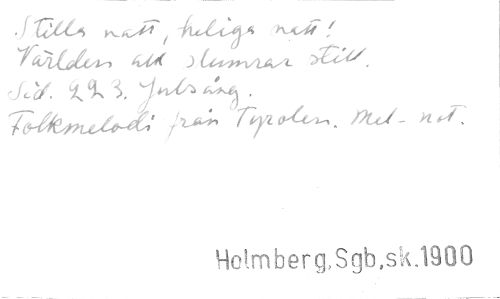 Stilla natt, heliga natt!
Världen all slumrar still.
Sid. 223. Julsång.
Folkmelodi från Tyrolen. Mel-not.
Holmberg,Sgb,sk.1900